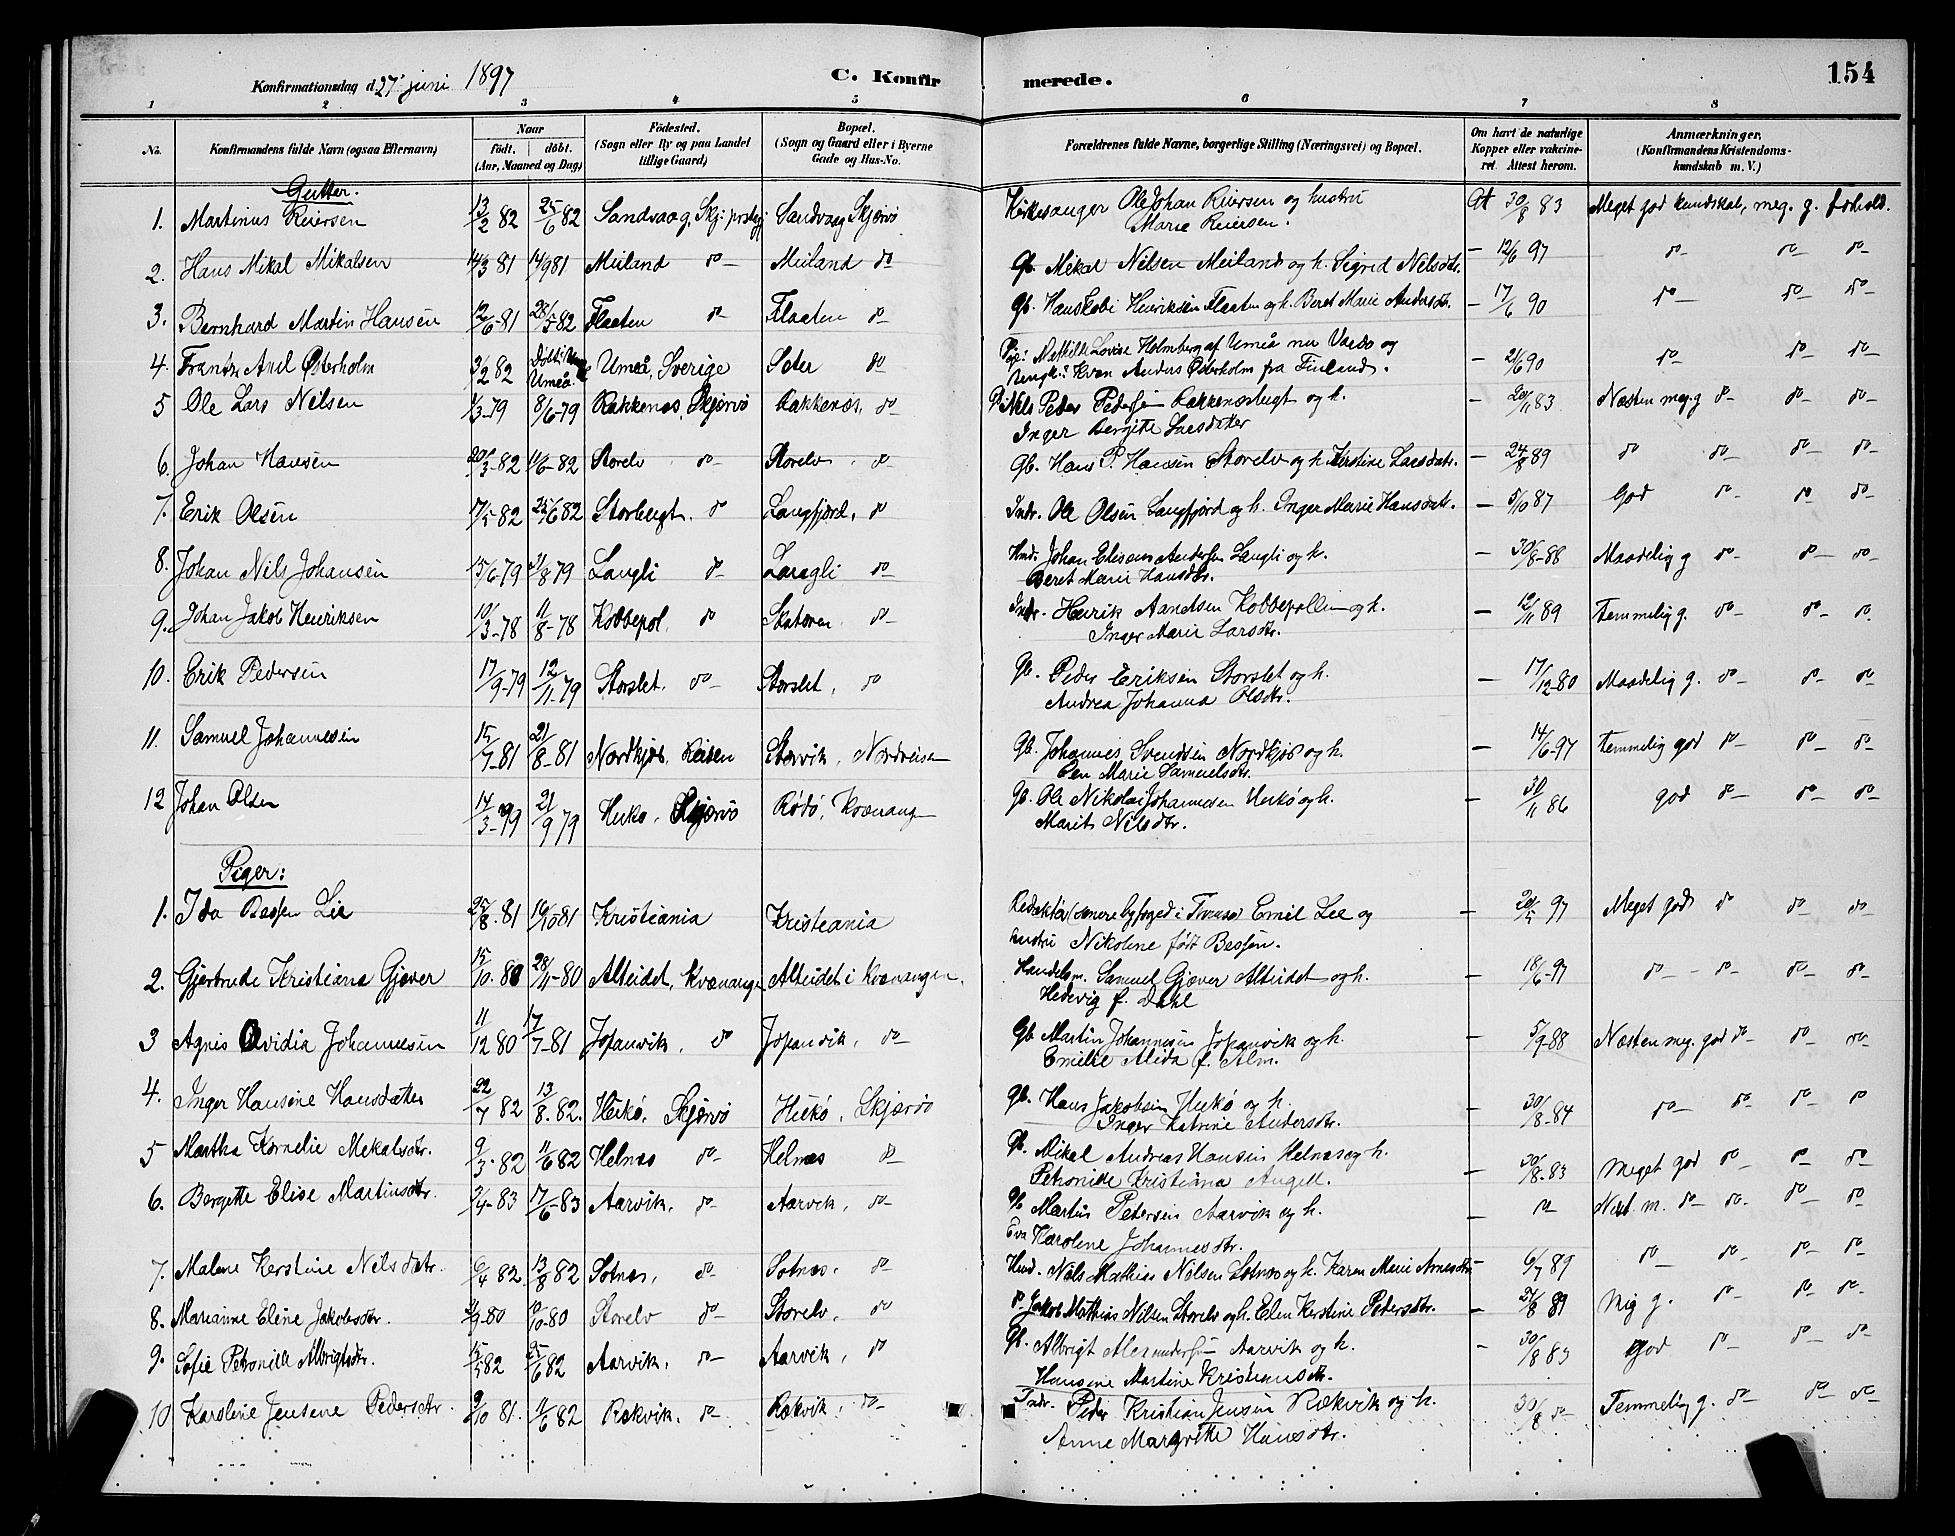 Konfirmationsdag d. 27' juni 1897
C. Konfir merede. 154
1 2 3 4 5 6 7 8
No. Konfirmandens fulde Navn (ogsaa Efternavn) Naar født. døbt. (Aar, Maaned og Dag) Fødested. (Sogn eller By og paa Landet tillige Gaard) Bopæl. (Sogn og Gaard eller i Byerne Gade og Hus-No. Forældrenes fulde Navne, borgerlige Stilling (Næringsvei) og Bopæl. Om havt de naturlige Kopper eller vakcineret. Attest herom. Anmærkninger. (Konfirmandens Kristendomskundskab m. V.)
Gutter.
1. Martinus Reiersen 13/2 82 25/6 82 Sandvaag, Skj: prstgj Sandvaag Skjervø Kirkesanger Ole Johan Reiersen og hustru
Marie Reiersen. At 30/8 83 Meget god kundskab, meg. g. forhold.
2. Hans Mikal Mikalsen 14/3 81 14/9 81 Meiland do- Meiland do Gb. Mikal Nilsen Meiland og h. Sigrid Nilsdtr. - 12/6 97 do- do- do-
3. Bernhard Martin Hansen 12/6-81 28/5-82 Flaaten do- Flaaten do- Gb. Hans Henriksen Flaaten og h. Beret Marie Andersdtr. - 17/6 90 do- do- do-
4. Axel Østerholm 3/2 82 Umeå Umeå, Sverige Seter do Pige: Mathilde Lovise Holmberg af Umeå nu Vardø og
Ungk: Kven Anders Østerholm fra Finland. - 2/6 90 do- do- do-
5 Ole Lars Nilsen 1/3-79 8/6-79 Rakkenæs, Skjervø Rakkenæs, do- Nils Peder Pedersen Rakkenæsbugt og h.
Inger Bergitte Larsdatter - 20/11 83 Næsten meg. g do- do- do-
6. Johan Hansen 20/3-82 11/6-82 Storelv do- Storelv do- Gb. Hans P. Hansen Storelv og h. Kerstine Larsdatr. - 24/8 89 do do- do- do-
7. Erik Olsen 17/5 82 25/6 82 Storbugt, do Langfjord, do Indr. Ole Olsen Langfjord og h. Inger Marie Hansdatr. - 5/10 87 God do- do- do-
8. Johan Nils Johansen 15/6-79 31/8 79 Langli do- Langli do- Hmd. Johan Elisæus Andersen Langli og h.
Beret Marie Hansdtr. - 30/8-88 Maadelig g do- do- do-
9. Johan Jakob Henriksen 10/3-78 11/8-78 Kobbepol. do Skatøren do- Indr. Henrik Kobbepollen og h.
Inger Marie Larsdtr. - 12/11 89 Temmelig g. do- do- do.
10. Erik Pedersen 17/9-79 12/11-79 Storslet, do- Storslet, do Gb. Peder Eriksen Storslet og h.
Andrea Johanna Olsdtr. - 17/12-80 Maadelig g. do- do- do-
11. Samuel Johannesen 15/7-81 21/8-81 Nordkjos, Reisen Storvik, Nordreisen Gb. Johannes Svendsen Nordkjos og h.
Marie Samuelsdtr. - 14/6-97 Temmelig god do- do- do-
12 Johan Olsen 14/3-79 21/9 79 Hukø, Skjervø Rödö, Kvænangen Gb. Ole Nikolai Johannesen Hukø og h.
Marit Nilsdtr. - 30/11 86 god do- do- do-
Piger:
1. Ida Bessen Lie 25/8. 81 16/10 81 Kristiania Kristiania Redaktør (senere byfoged i Tromsø) Emil Lie og
hustru Nikoline født Bessen. - 20/5 97 Meget god do do- do-
2. Gjertrude Kristiane Gjæver 15/10. 80 28/11-80 Alteidet, Kvænangen Alteidet i Kvænangen. Handelsm. Samuel Gjæver Alteidet og h.
Hedevig f. Dahl - 18/6-97 do- do- do- do-
3 Agnes Ovidia Johannesen 11/12 80 17/7-81 Jøpanvik, do Jøpanvik, do- Gb Martin Johannesen Jøpanvik og h.
Emilie Alida f. Alm. - 5/9-88 Næsten meg. god do- do- do-
4. Inger Hansine Hansdatter 22/7 82 13/8-82. Hukø, Skjervø Hukø, Skjervø Gb. Hans Jakobsen Hukø og h.
Inger Katrine Andersdtr. - 30/8-84 do- do- do- do
5 Martha Kornelie Mekalsdtr. 9/3-82 11/6 82 Helnæs do- Helnæs do- Gb. Mikal Andreas Hansen Helnæs og h.
Petronille Kristiana Angell. - 30/8-83 Meget god do- do- do-
6. Bergitte Elise Martinsdtr. 3/4-83 17/6-83 Aarvik, do- Aarvik, do- Gb Martin Petersen Aarvik og h.
Eva Karoline Johannesdtr. - do- Næst. m. do- do- do- do
7. Malene Kerstine Nilsdatr. 6/4 82 13/8 82 Sotnæs, do- Sotnæs, do- Hmd. Nils Mathias Nilsen Sotnæs og h. Karen Marie Arnesdtr. - 6/7 89 do- do- do- do-
8. Marianne Eline Jakobsdtr. 2/9-80 10/10-80 Storelv do- Storelv, do- do. Jakob Mathias Nilsen Storelv og h. Elen Kerstine Pedersdtr. - 24/8 89 Mig g. do- do- do-
9. Sofie Petronille Albrigtsdtr. 15/5 82 25/6 82 Aarvik, do- Aarvik, do Gb. Albrigt Aarvik og h.
Hansine Martine Kristiansdtr. - 30/8 83 god do- do- do-
10 Karoline Jensine Pedersdtr. 9/10 81 11/6 82 Rækvik, do- Rækvik, do- Indr. Peder Kristian Jensen Rækvik og h.
Anne Margrethe Hansdtr. 30/8 do- Temmelig g. do- do- do-